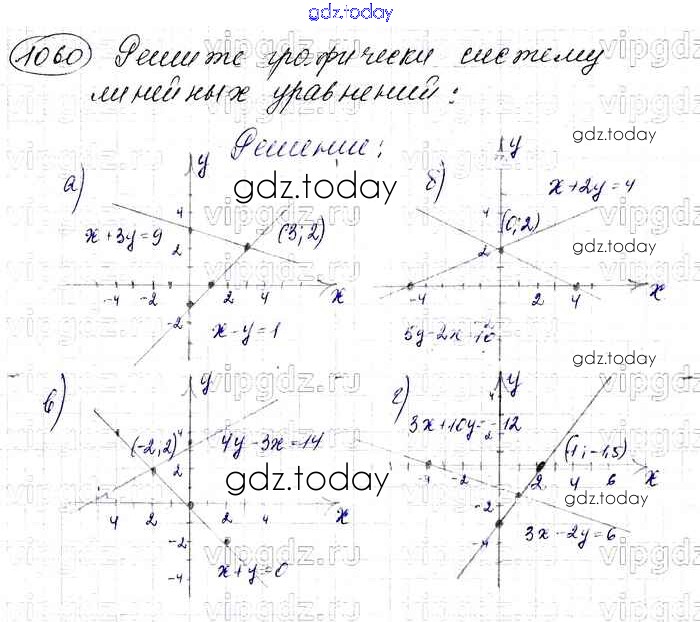 gdz.today
1060 Решите графически систему
линейных уравнений:
Решение:
gdz.today
а) y
gdz.today
x+3y=9
(3; 2)
4
2
-4 -2 2 4 x
-2
x-y=1
б) y
x+2y=4
4
(0; 2)
2
-4 2 4 x
5y-2x=10
gdz.today
в) y
(-2; 2)
4
4y-3x=14
2
gdz.today
4 2 2 4 x
-2
x+y=0
-4
г) y
4
3x+10y=-12
2
(1; -1,5)
-4 -2 2 4 6 x
gdz.today
-2
3x-2y=6
-4
vipgdz.ru